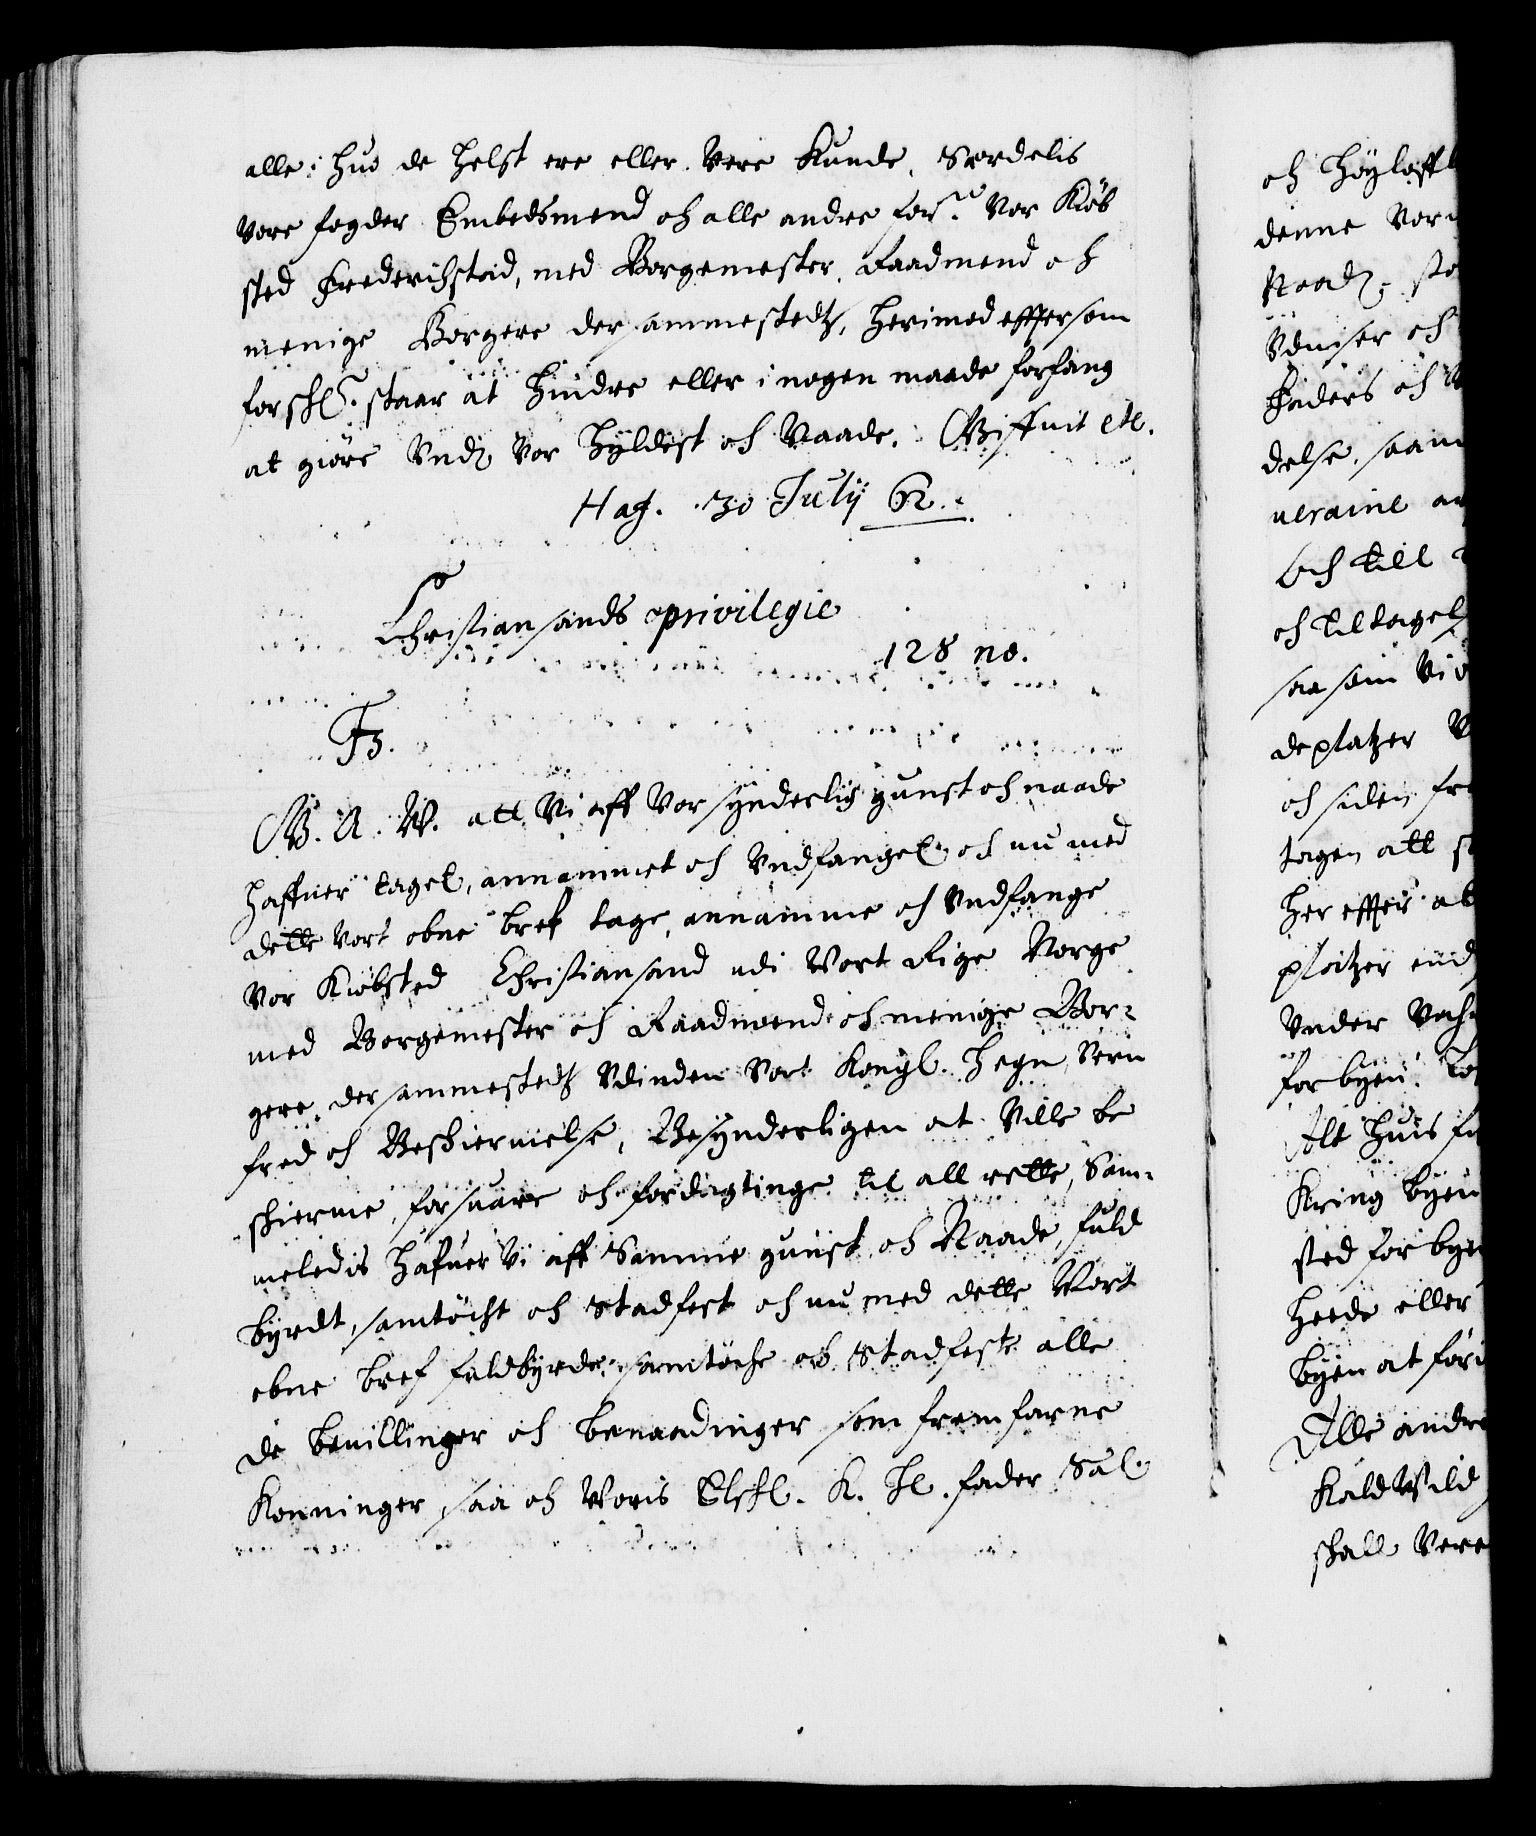 alle: huo de helst ere eller Vere Kunde, Særdelis
Vore fogder Embedsmend och alle andre fors:ne Vor Kiøb
sted Frederichstad, med Borgemester, Raadmend och
menige Borgere der sammestedtz, herimod effter som
forschl. staar at hindre eller i nogen maade forfang
at giøre Vnd. Vor hyldest och Naade. Giffuit etc.
Haf. 30 July 62.
Christiansands privilegie
128 no.
F3.
G. A. W. att Vi aff Vor synderlig gunst och naade
haffuer taget, annammet och Vndfanget och nu med
dette Vort obne bref tage, annamme och Vndfange
Vor Kiøbsted Christiansand udi Vort Rige Norge
med Borgemester och Raadmend och menige Bor-
gere, der sammestedtz Vdinden Vort Kongl. hegn, Vern
fred och Beskiermelse, Besynderligen at Ville be
skierme, forsuare och fordagtinge til all rette, Sam-
meledis hafuer Vi aff Samme gunst och Naade, fuld
byrdt, samtÿcht och Stadfest och nu med dette Vort
obne bref fuldbyrde, samtÿche och Stadfeste alle
de beuillinger och benaadinger som fremfarne
Konninger, saa och Voris Elschl. K. H. fader Sal.
och Høyloffl
denne Vor
Naad. sta
Vduiser och
Faders och
delse, saam
ueraine
och till
och tiltagels
saa som Vi
deplatzer
och siden fr
tagen att
her effter
platzer
Vnder
for byen
Alt huis
Kring byen
sted for bye
heede eller
byen at før
Alle andre
Kald
skall Vere